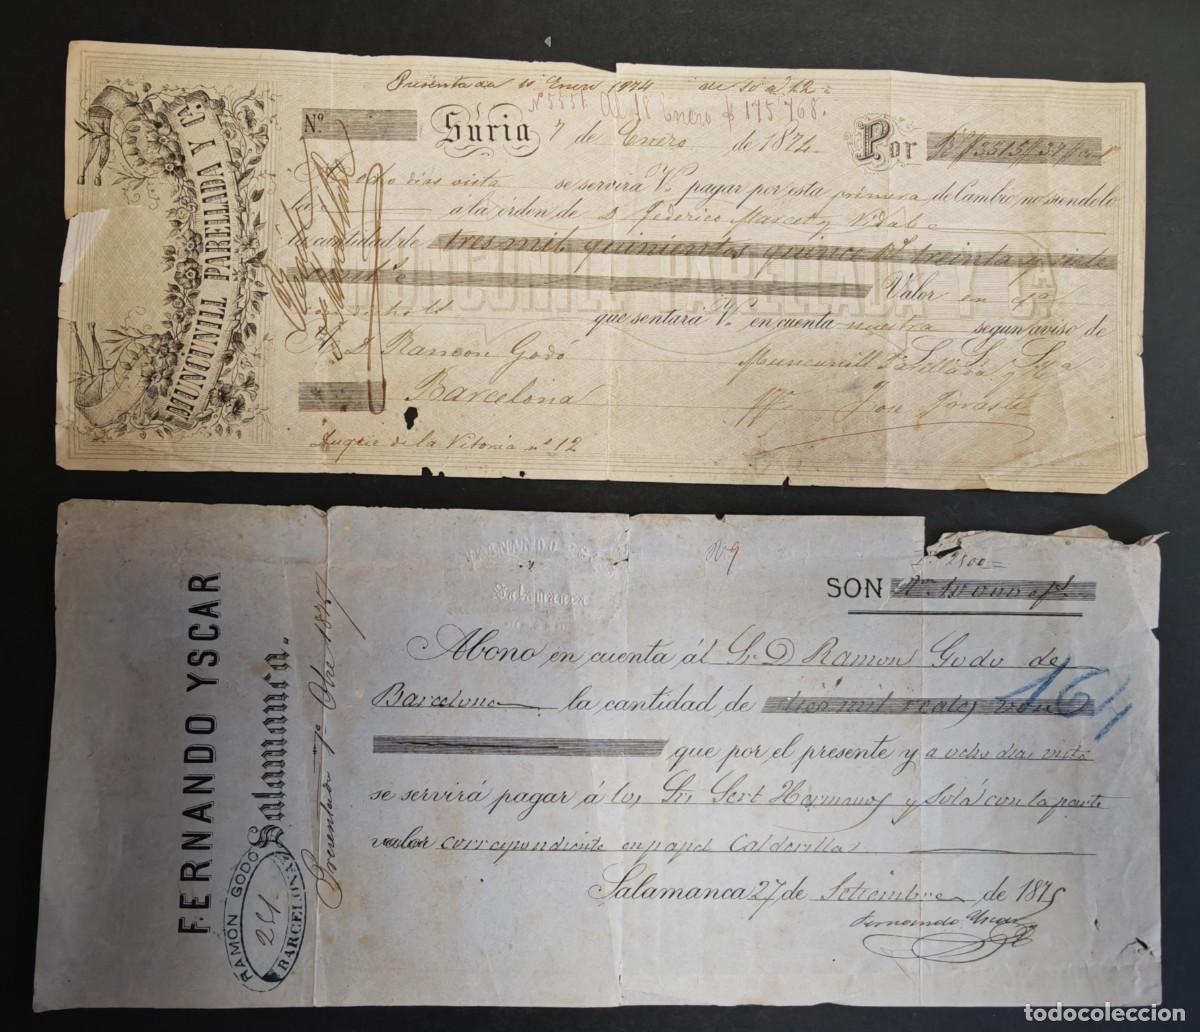 Presentada 10 Enero 1874 de 10 a 12
Nº 5551. Al 18 Enero $ 175 768.
MUNCUNILL PARELLADA Y Cª
Nº Súria 7 de Enero de 1874 Por
Ocho dias vista se servirá V. pagar por esta primera de Cambio no siendolo
a la órden de D. Federico Marcet y Vidal
la cantidad de tres mil quinientas quince treinta y siete
Valor en
que sentará V. en cuenta nuestra segun aviso de
A D. Ramon Godó Muncunill Parellada y Cª
Barcelona Jose
Duque de la Vitoria nº 12
FERNANDO YSCAR
Salamanca.
RAMÓN GODÓ
251
BARCELONA
Presentada 1º Obre 1875
FERNANDO YSCAR
Salamanca
809
2500=
SON Rvn 10000
Abono en cuenta ál Sr. D Ramon Godo de
Barcelona la cantidad de diez mil reales vellon
161
que por el presente y a ocho dias vista
se servirá pagar á los Srs Sert Hermanos y Solá con la parte
valor correspondiente en papel Calderilla
Salamanca 27 de Setiembre de 1875
Fernando Yscar
todocoleccion